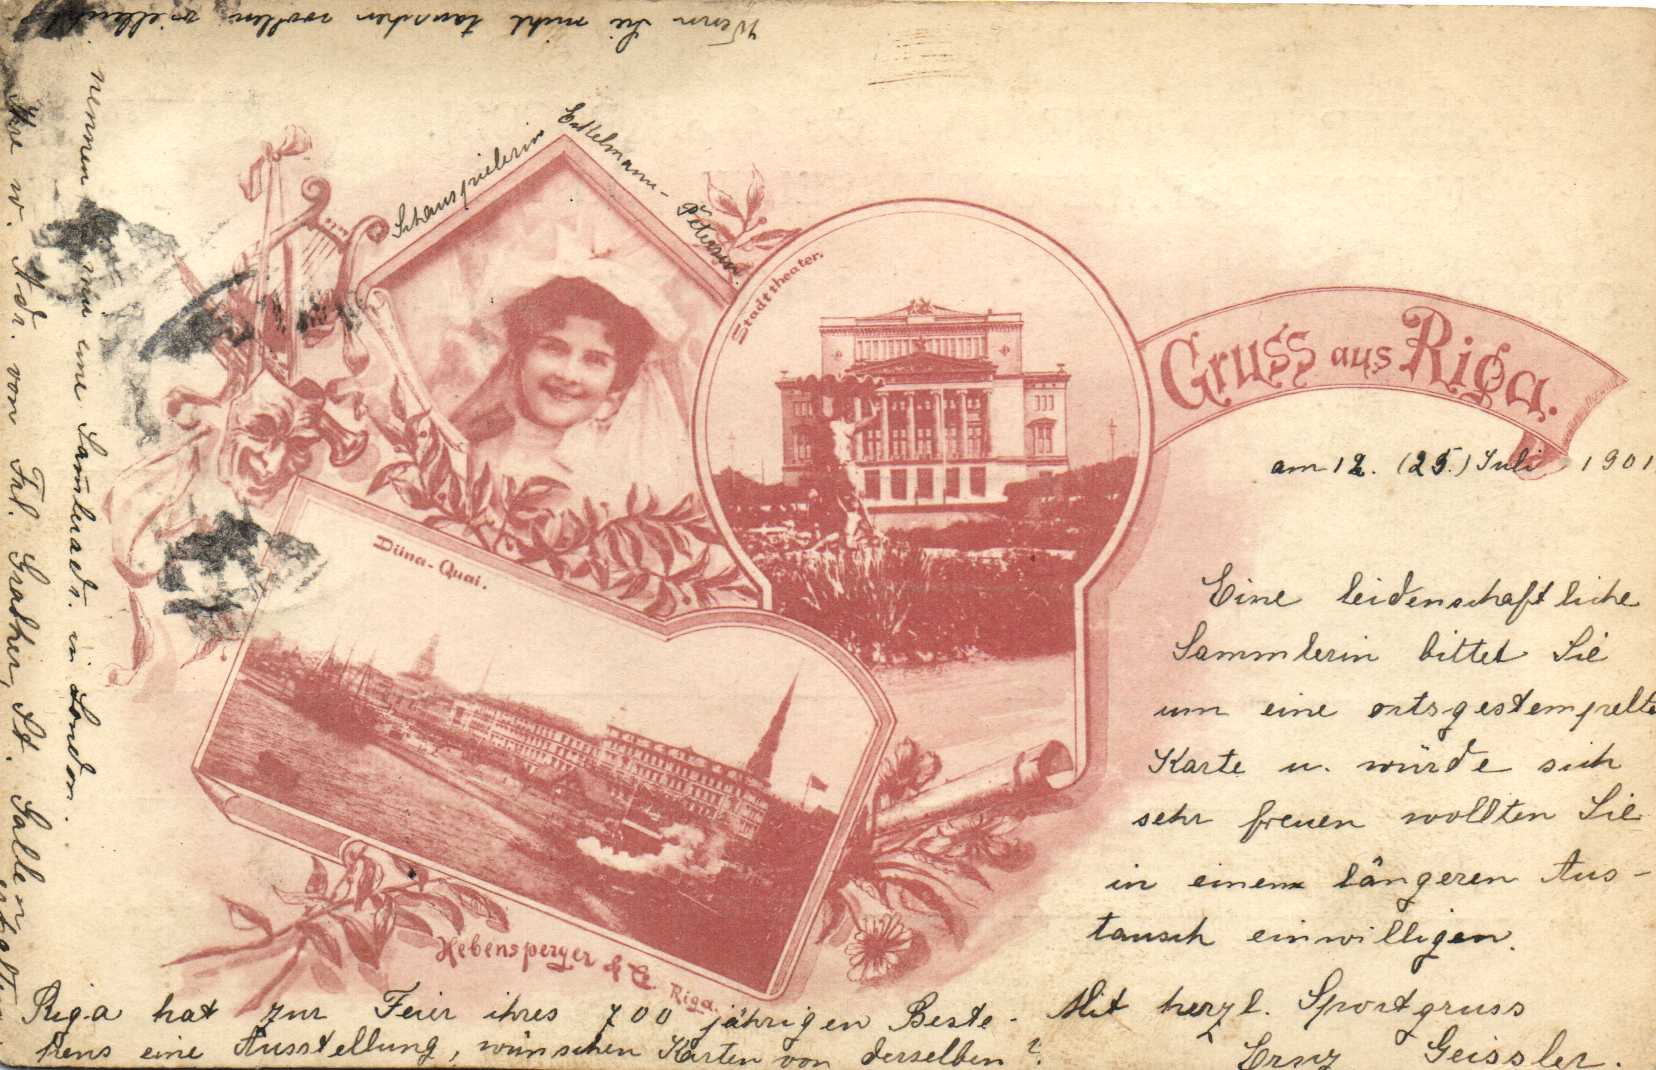 Wenn Sie nicht tauschen wollen vielleicht
nennen mir eine Sammleradr. in London.
Ihre w. Adr. von Frl. Gradher, St. Gallen
Schauspielerin Eckelmann-
Petersen
Stadttheater.
Gruss aus Riga.
am 12. (25.) Juli 1901
Düna-Quai.
Eine leidenschaftliche
Sammlerin bittet Sie
um eine ortsgestempelte
Karte u. würde sich
sehr freuen wollten Sie
in einem längeren Aus-
tausch einwilligen.
Mit herzl. Sportgruss
Geissler.
Hebensperger & Co Riga.
Riga hat zur Feier ihres 700 jährigen Beste-
hens eine Ausstellung, wünschen Karten von derselben?